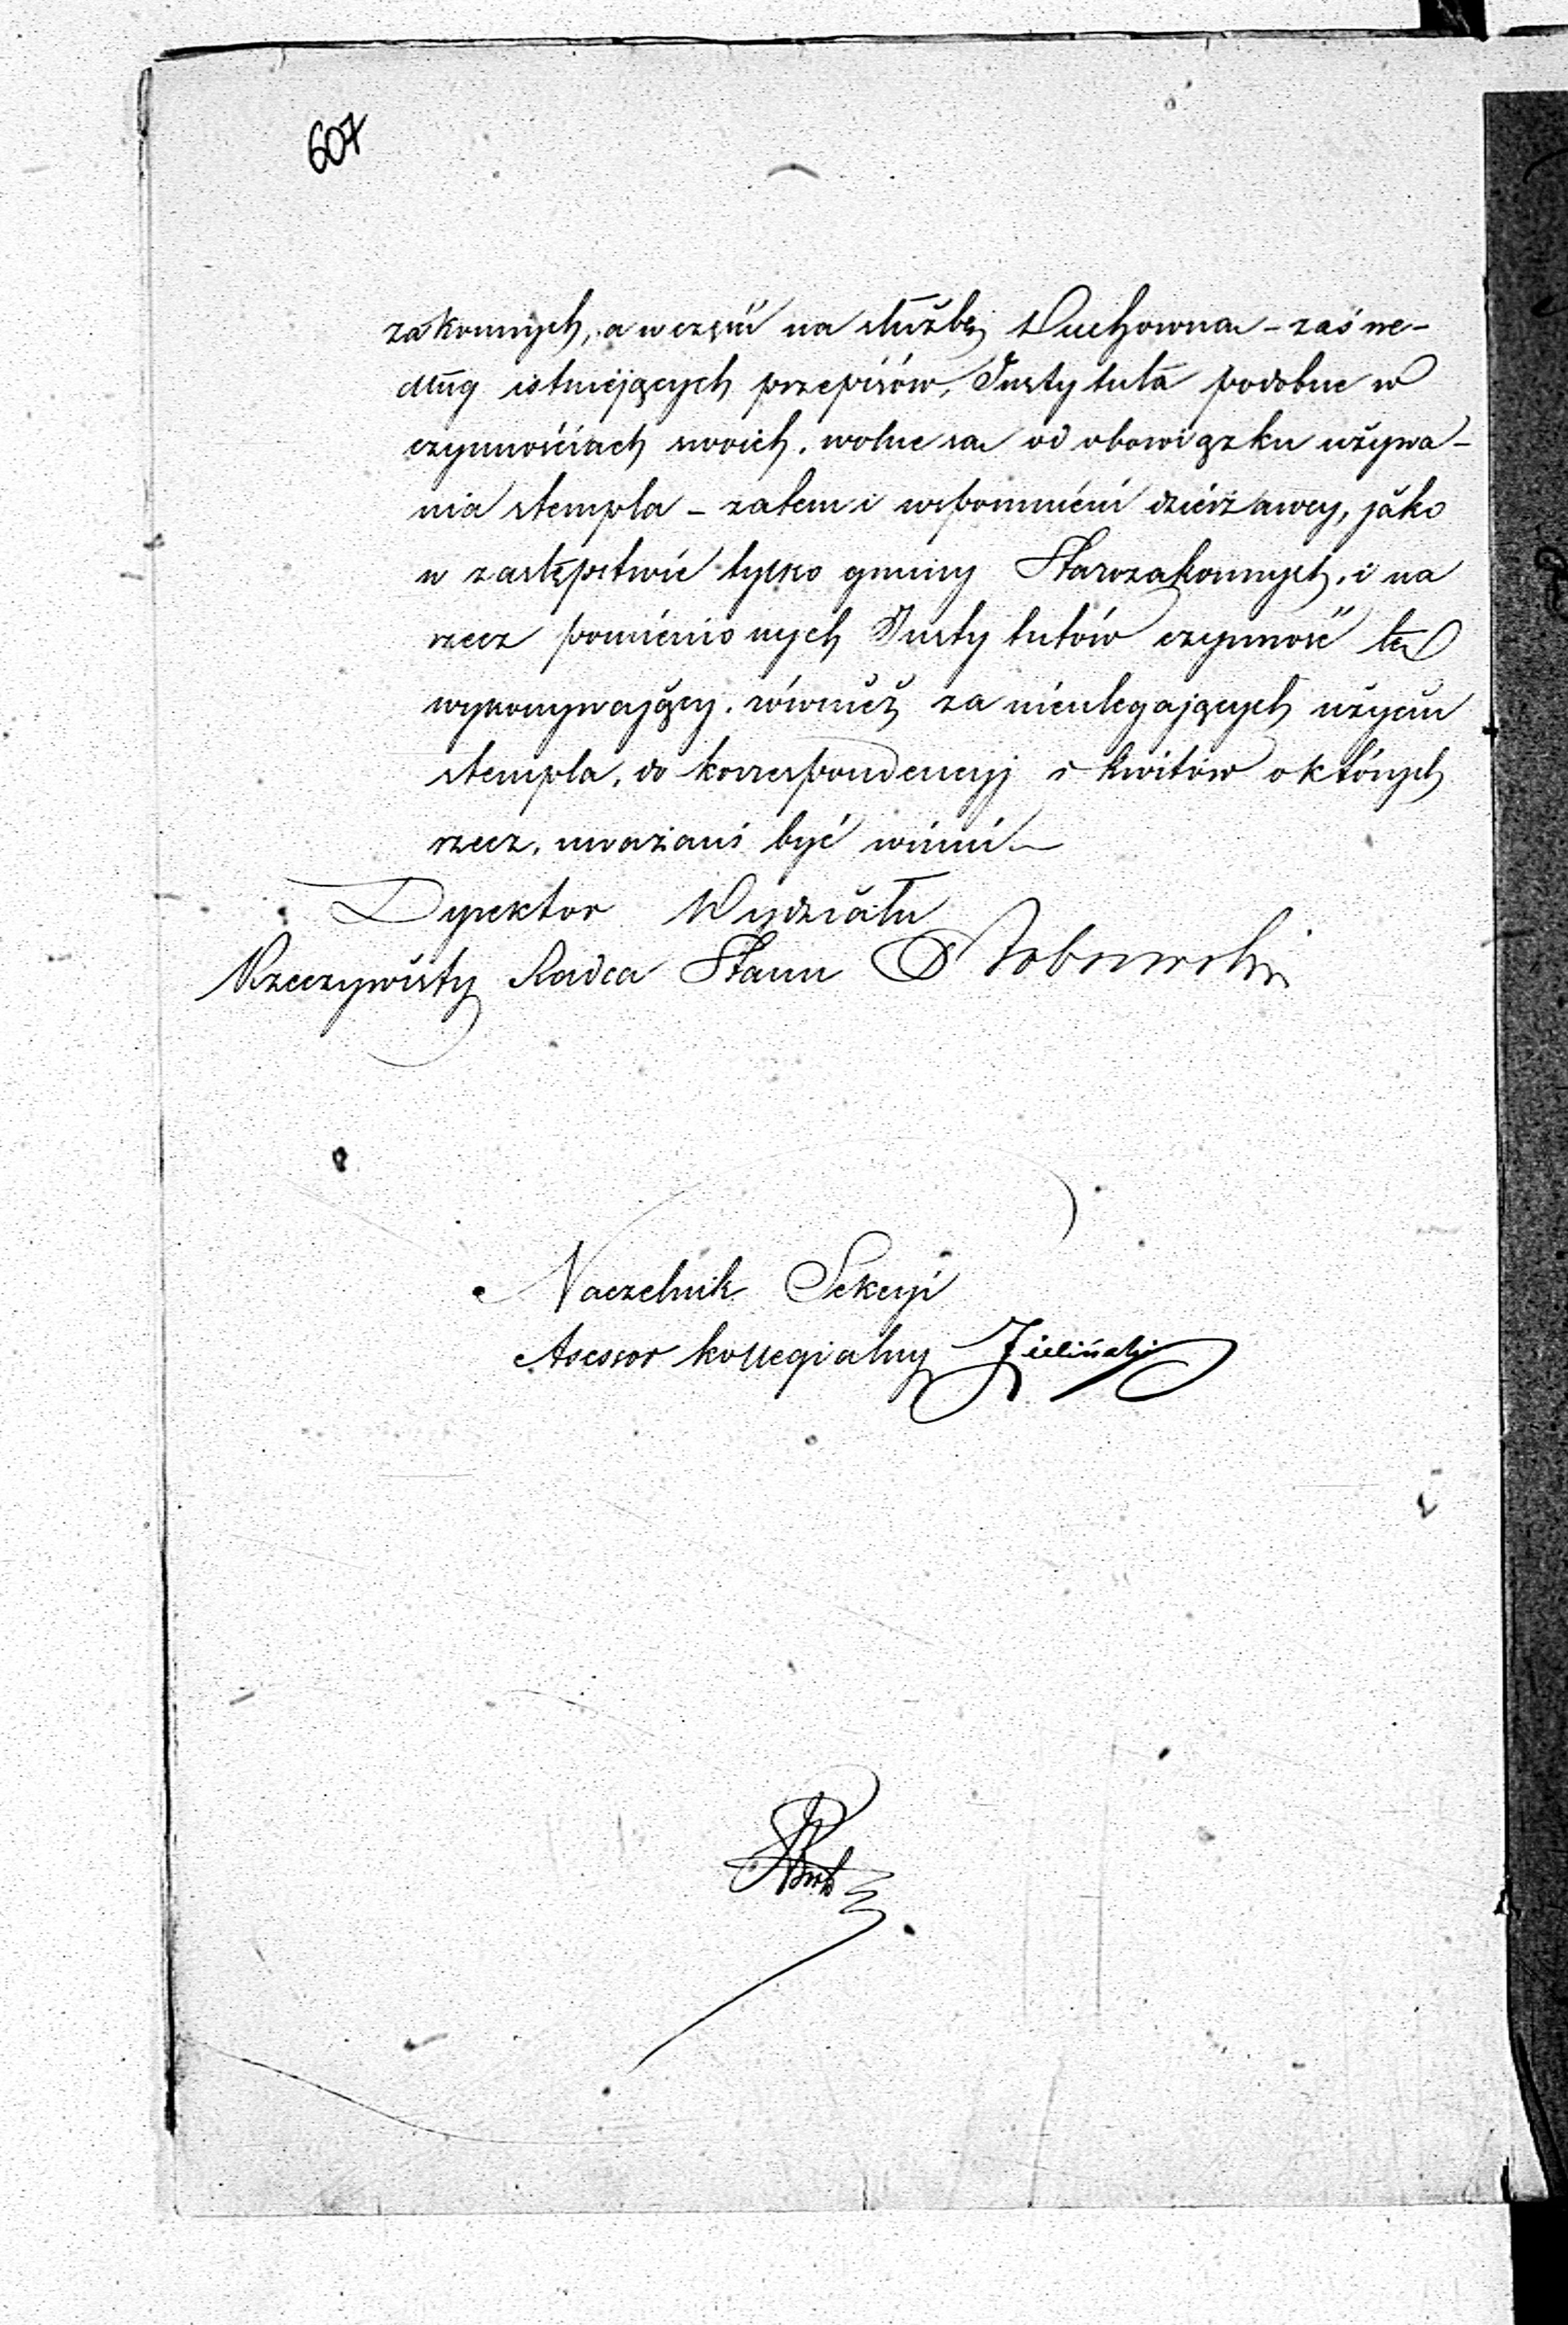 607
zakonnych, a w części na służbę Duchowną – zaś we-
dług istniejących przepisów, Instytuta podobne w
czynnościach swoich, wolne są od obowiązku używa-
nia stempla – zatem i wspomnieni dzierżawcy, jako
w zastępstwie tylko gminy Starozakonnych, i na
rzecz pomienionych Instytutów czynność tę
wykonywający, również za nieulegających użyciu
stempla, do korrespondencyj i kwitów o których
rzecz, uważani być winni –
Dyrektor Wydziału
Rzeczywisty Radca Stanu
Naczelnik Sekcyi
Asessor kollegialny Zieliński